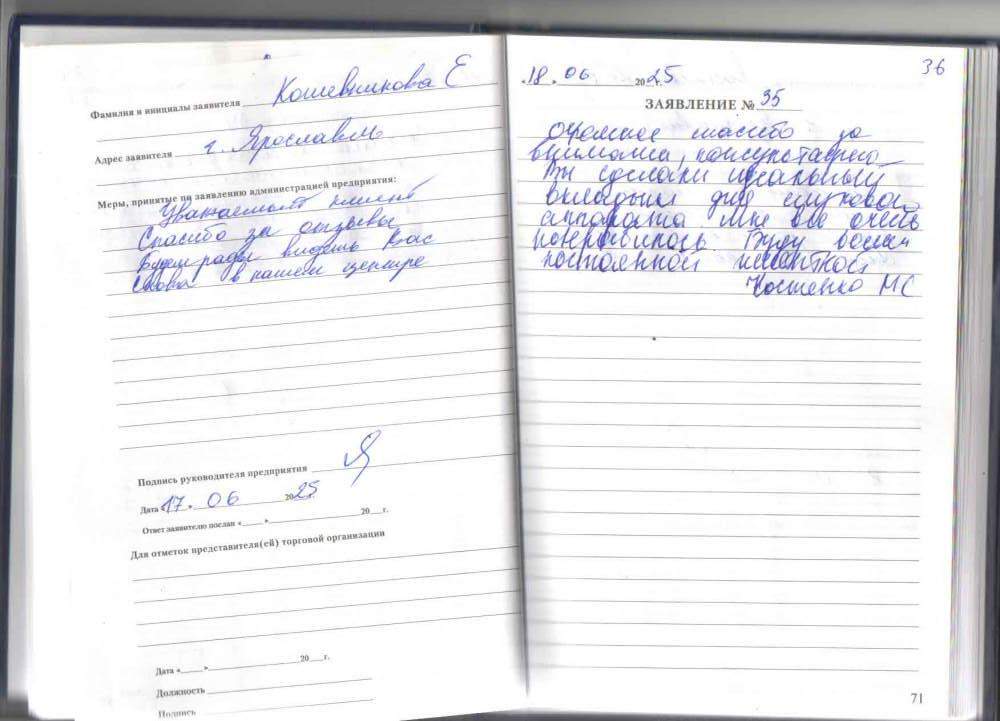 Фамилия и инициалы заявителя Кошевникова Е
Адрес заявителя г. Ярославль
Меры, принятые по заявлению администрацией предприятия:
Уважаемый клиент
Спасибо за отзывы
Будем рады видеть Вас
снова в нашем центре
Подпись руководителя предприятия
Дата «17» 06 2025
Ответ заявителю послан «___» 20___г.
Для отметок представителя(ей) торговой организации
Дата «___» 20___г.
Должность
Подпись
36
«18» 06 2025г.
ЗАЯВЛЕНИЕ № 35
Огромное спасибо за
Вы сделали идеальный
вкладыш для слухового
аппарата Мне все очень
понравилось Буду вашей
постоянной
Костенко МС
71